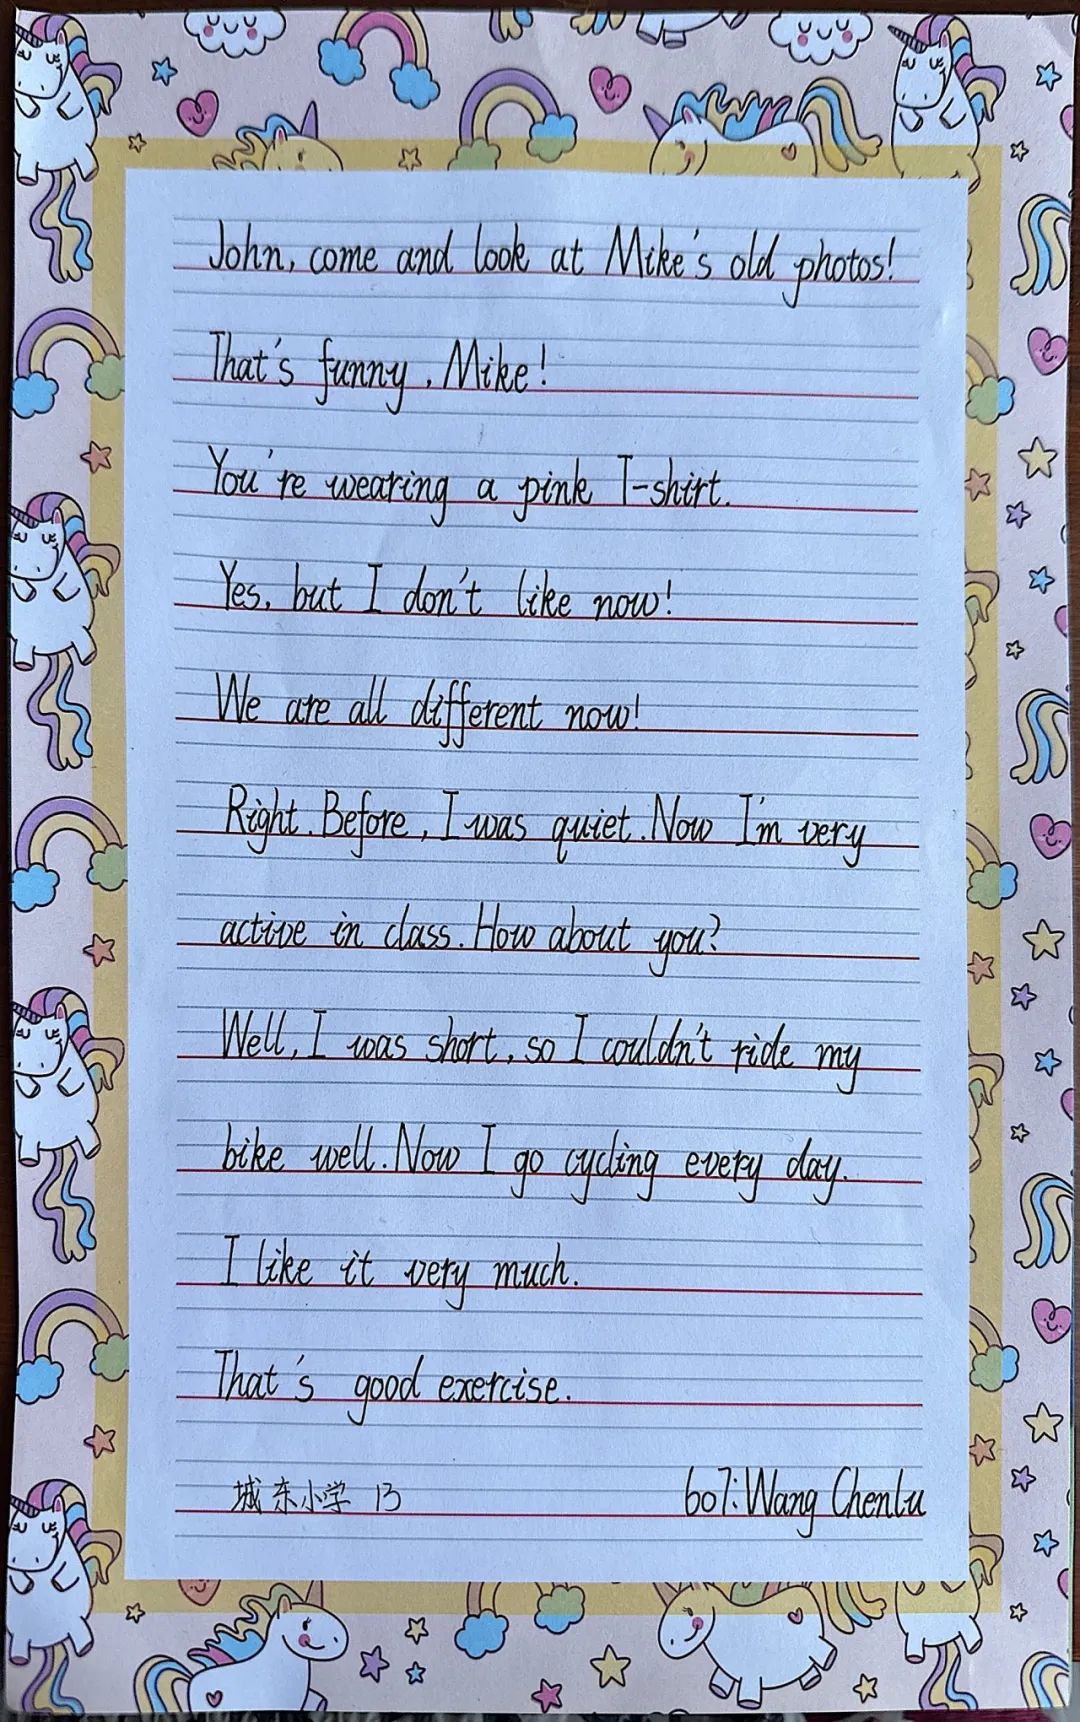 John, come and look at Mike's old photos!
That's funny, Mike!
You're wearing a pink T-shirt.
Yes, but I don't like now!
We are all different now!
Right. Before, I was quiet. Now I'm very
active in class. How about you?
Well, I was short, so I couldn't ride my
bike well. Now I go cycling every day.
I like it very much.
That's good exercise.
城东小学 13 607: Wang Chenlu